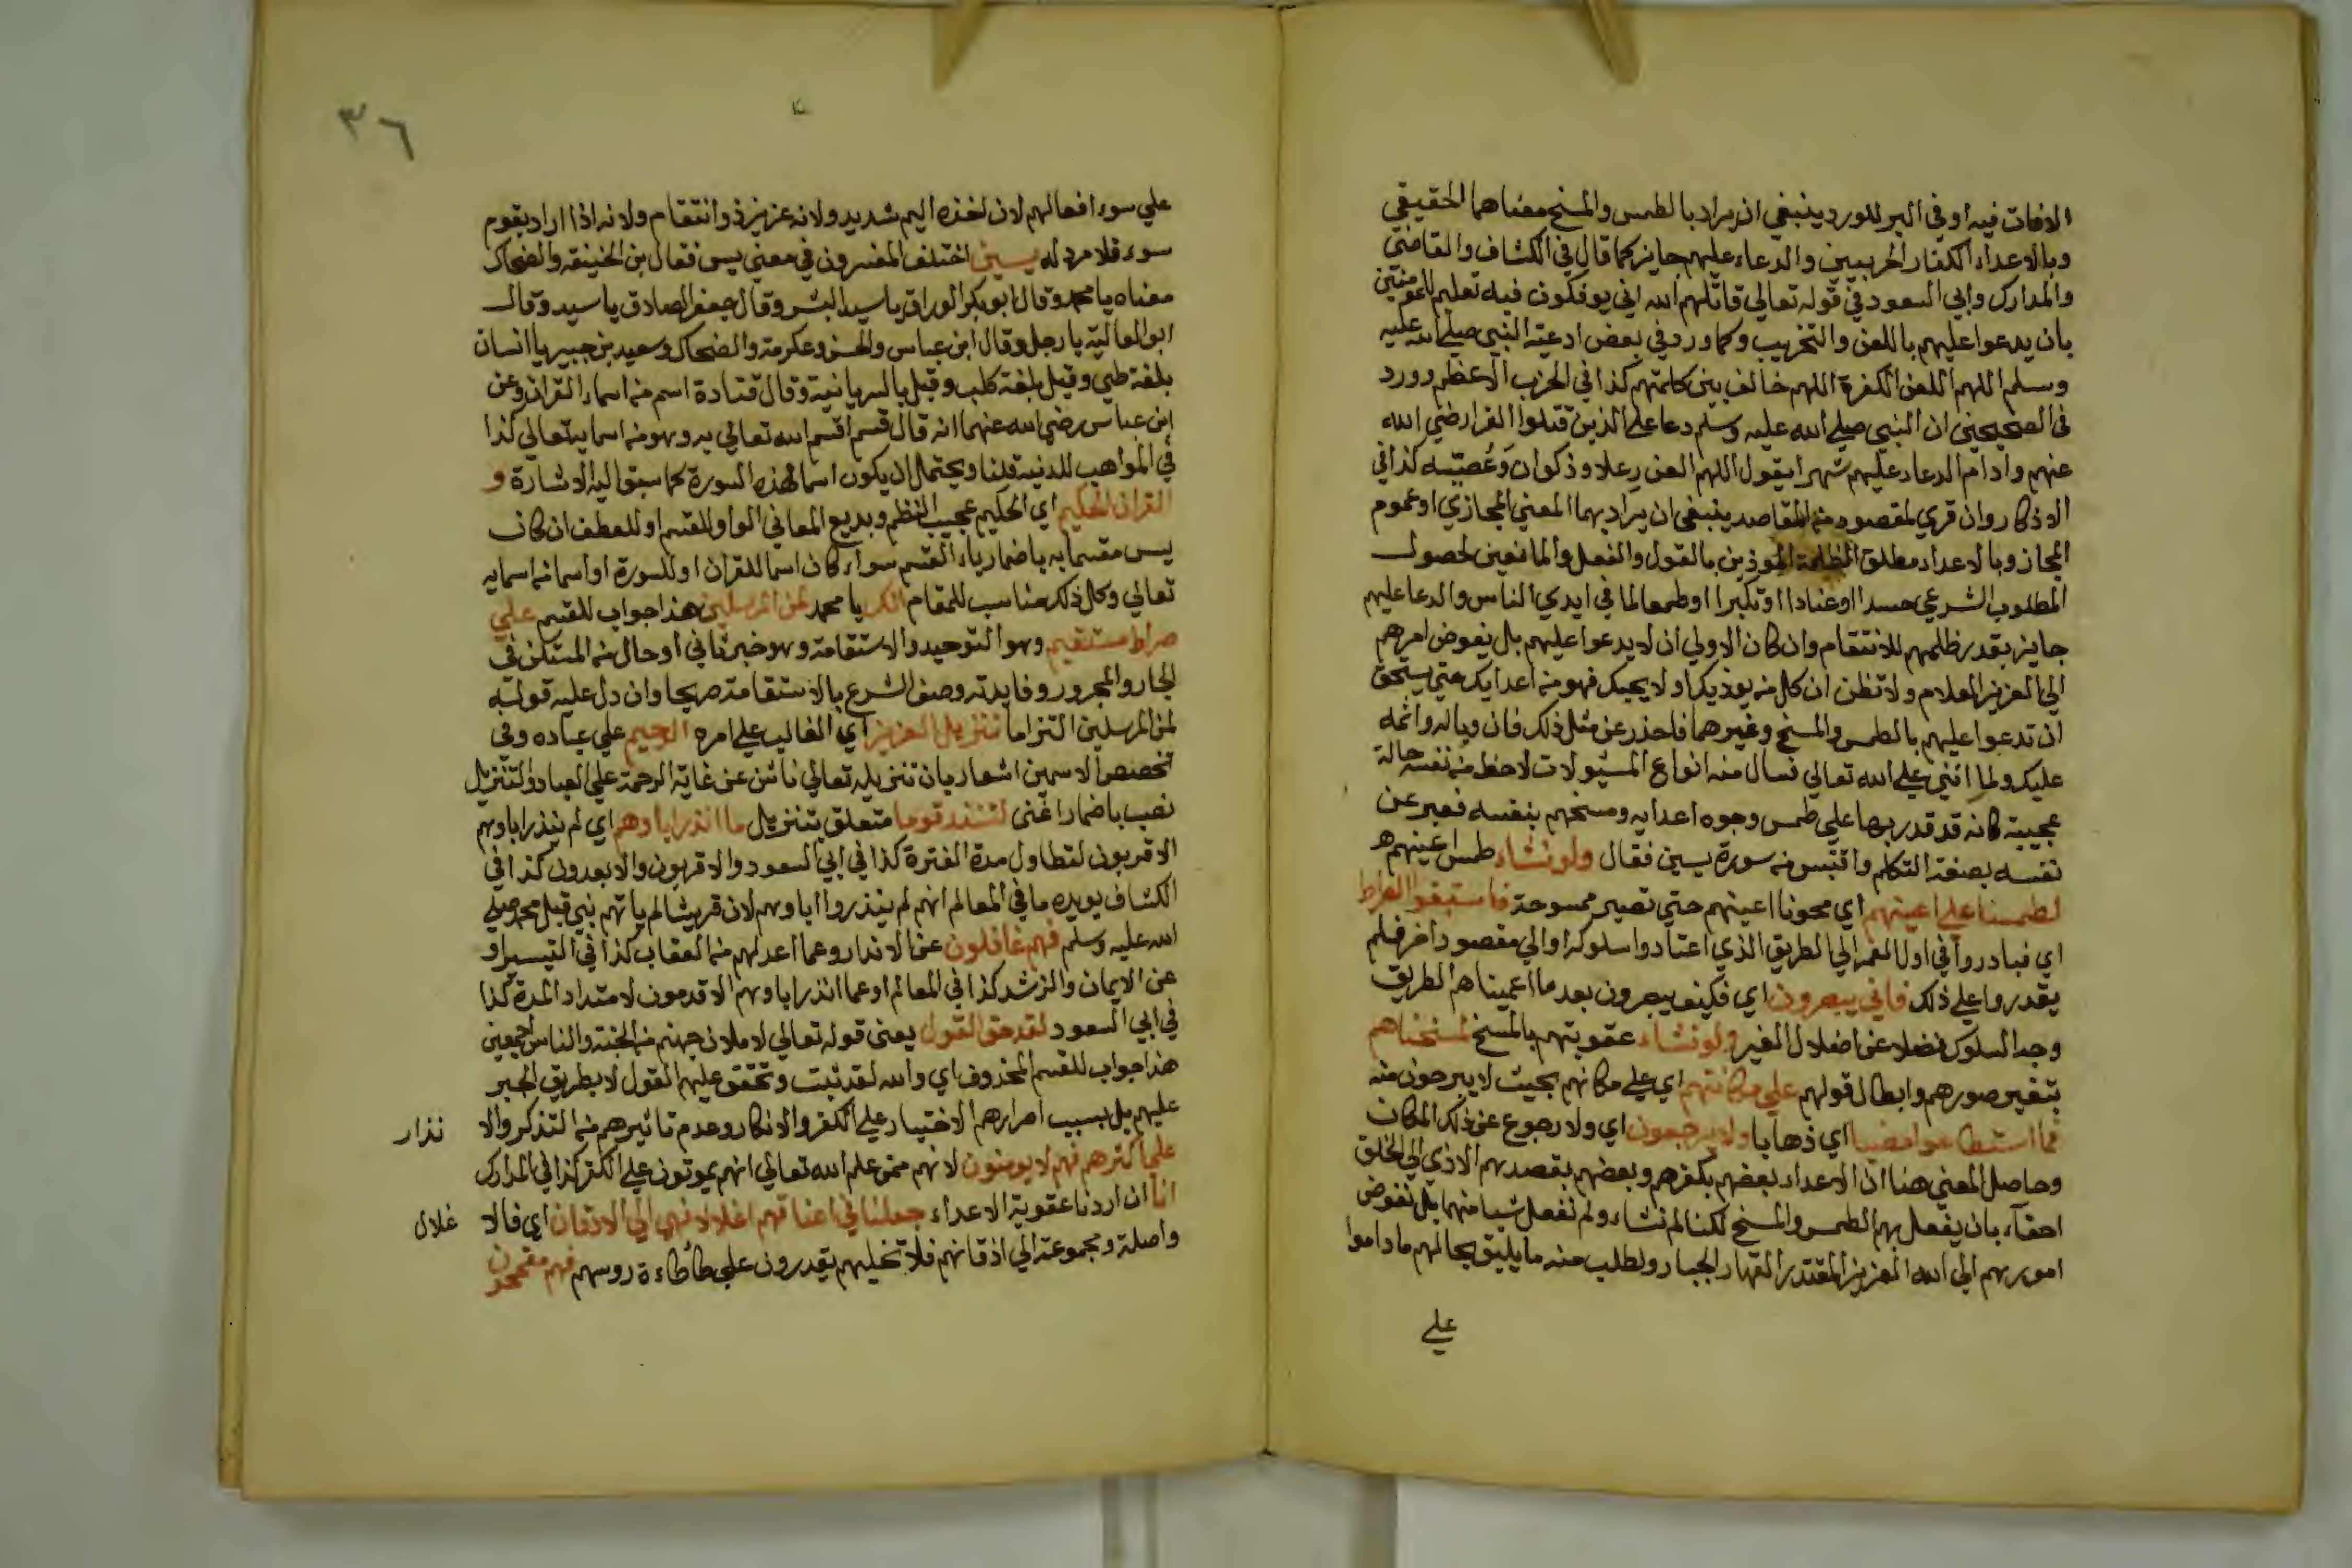 الافات فيه او في البر للورد ينبغي ان يراد بالطمس والمسخ معناهما الحقيقي
وبالاعداء الكفار الحربيين والدعاء عليهم جايز كما قال في الكشاف والقاضي
والمدارك وابي السعود في قوله تعالي قاتلهم الله اني يوفكون فيه تعليم للمومنين
بان يدعوا عليهم باللعن والتخريب وكما ورد في بعض ادعية النبي صلي الله عليه
وسلم اللهم اللعن الكفرة اللهم خالف بين كلمتهم كذا في الحزب الاعظم وورد
في الصحيحين ان النبي صلي الله عليه وسلم دعا علي الذين قتلوا القرا رضي الله
عنهم وادام الدعاء عليهم شهرا يقول اللهم العن رعلا وذكوان وعصيه كذا في
الاذكار وان قري لمقصود من المقاصد ينبغي ان يراد بهما المعني المجازي او عموم
المجاز وبالاعداء مطلق الظلمة الموذين بالقول والفعل والمانعين لحصول
المطلوب الشرعي حسدا او عنادا او تكبرا او طمعا لما في ايدي الناس والدعا عليهم
جايز بقدر ظلمهم للانتقام وان كان الاولي ان لا يدعوا عليهم بل يفوض امرهم
الي العزيز العلام ولا تظن ان كل من يوذيك او لا يحبك فهو من اعدايك حتي يستحق
ان تدعوا عليهم بالطمس والمسخ وغيرهما فاحذر عن مثل ذلك فان وباله واثمه
عليك ولما اثني علي الله تعالي نسال منه انواع المسئولات لاحظ من نفسه حالة
عجيبة كانه قد قدر بها علي طمس وجوه اعدايه ومسخهم بنفسه فعبر عن
نفسه بصفة التكلم واقتبس من سورة يسين فقال ولو نشاء طمس اعينهم
لطمسنا علي اعينهم اي محونا اعينهم حتي تصير ممسوحة فاستبقوا الصراط
اي فبادروا في اول الفجر الي الطريق الذي اعتادوا سلوكه او الي مقصود اخر فلم
يقدروا علي ذلك فاني يبصرون اي فكيف يبصرون بعد ما اعميناهم الطريق
وجه السلوك فضلا عن اضلال الغير ولو نشاء عقوبتهم بالمسخ لمسخناهم
بتغير صورهم وابطال قولهم علي مكانتهم اي علي مكانهم بحيث لا يبرحون منه
فما استطاعوا مضيا اي ذهابا ولا يرجعون اي ولا رجوع عن ذلك المكان
وحاصل المعني هنا ان الاعداء بعضهم بكفرهم وبعضهم بقصدهم الاذي الي الخلق
احقاء بان يفعل بهم الطمس والمسخ لكنا لم نشاء ولم نفعل شيا منهما بل نفوض
امورهم الي الله العزيز المقتدر القهار الجبار ونطلب منه ما يليق بحالهم ما داموا
علي
٣٦
علي سوء افعالهم لان اخذه اليم شديد ولانه عزيز ذو انتقام ولانه اذا اراد بقوم
سوء فلا مرد له يسين اختلف المفسرون في معني يس فقال بن الحنيفه والضحاك
معناه يا محمد وقال ابو بكر الوراق يا سيد البشر وقال جعفر الصادق يا سيد وقال
ابو العالية يا رجل وقال ابن عباس والحسن وعكرمة والضحاك وسعيد بن جبير يا انسان
بلغة طي وقيل بلغة كلب وقيل بالسريانية وقال قتادة اسم من اسماء القران وعن
ابن عباس رضي الله عنهما انه قال قسم اقسم الله تعالي به وهو من اسمايه تعالي كذا
في المواهب للدنية قلنا ويحتمل ان يكون اسما لهذه السورة كما سبق اليه الاشارة و
القران الحكيم اي الحكيم عجيب النظم وبديع المعاني الواو للقسم او للعطف ان كان
يس مقسما به باضمار باء القسم سواء كان اسما للقران او للسورة او اسما من اسمايه
تعالي وكل ذلك مناسب للمقام انك يا محمد لمن المرسلين هذا جواب للقسم علي
صراط مستقيم وهو التوحيد والاستقامة وهو خبر ثاني او حال من المستكن في
الجار والمجرور وفايدته وصف الشرع بالاستقامة صريحا وان دل عليه قوله
لمن المرسلين التزاما تنزيل العزيز اي الغالب علي امره الرحيم علي عباده وفي
تخصيص الاسمين اشعار بان تنزيله تعالي ناش عن غاية الرحمة علي العباد والتنزيل
نصب باضمار اعني لتنذر قوما متعلق بتنزيل ما انذر اباوهم اي لم ينذر اباوهم
الاقربون لتطاول مدة الفترة كذا في ابي السعود والاقربون والابعدون كذا في
الكشاف يويده ما في المعالم انهم لم ينذروا اباوهم لان قريشا لم ياتهم نبي قبل محمد صلي
الله عليه وسلم فهم غافلون عن الانذار وعما اعد لهم من العقاب كذا في التيسير او
عن الايمان والرشد كذا في المعالم او عما انذر اباوهم الاقدمون لامتداد المدة كذا
في ابي السعود لقد حق القول يعني قوله تعالي لاملان جهنم من الجنة والناس اجمعين
هذا جواب للقسم المحذوف اي والله لقد ثبت وتحقق عليهم القول لا بطريق الجبر
عليهم بل بسبب اصرارهم الاختيار علي الكفر والانكار وعدم تاثيرهم من التذكر والا نذار
علي اكثرهم فهم لا يومنون لانهم ممن علم الله تعالي انهم يموتون علي الكفر كذا في المدارك
انا ان اردنا عقوبة الاعداء جعلنا في اعناقهم اغلالا فهي الي الاذقان اي فالا غلال
واصلة ومجموعة الي اذقانهم فلا تخليهم يقدرون علي طاطاءة روسهم فهم مقمحون